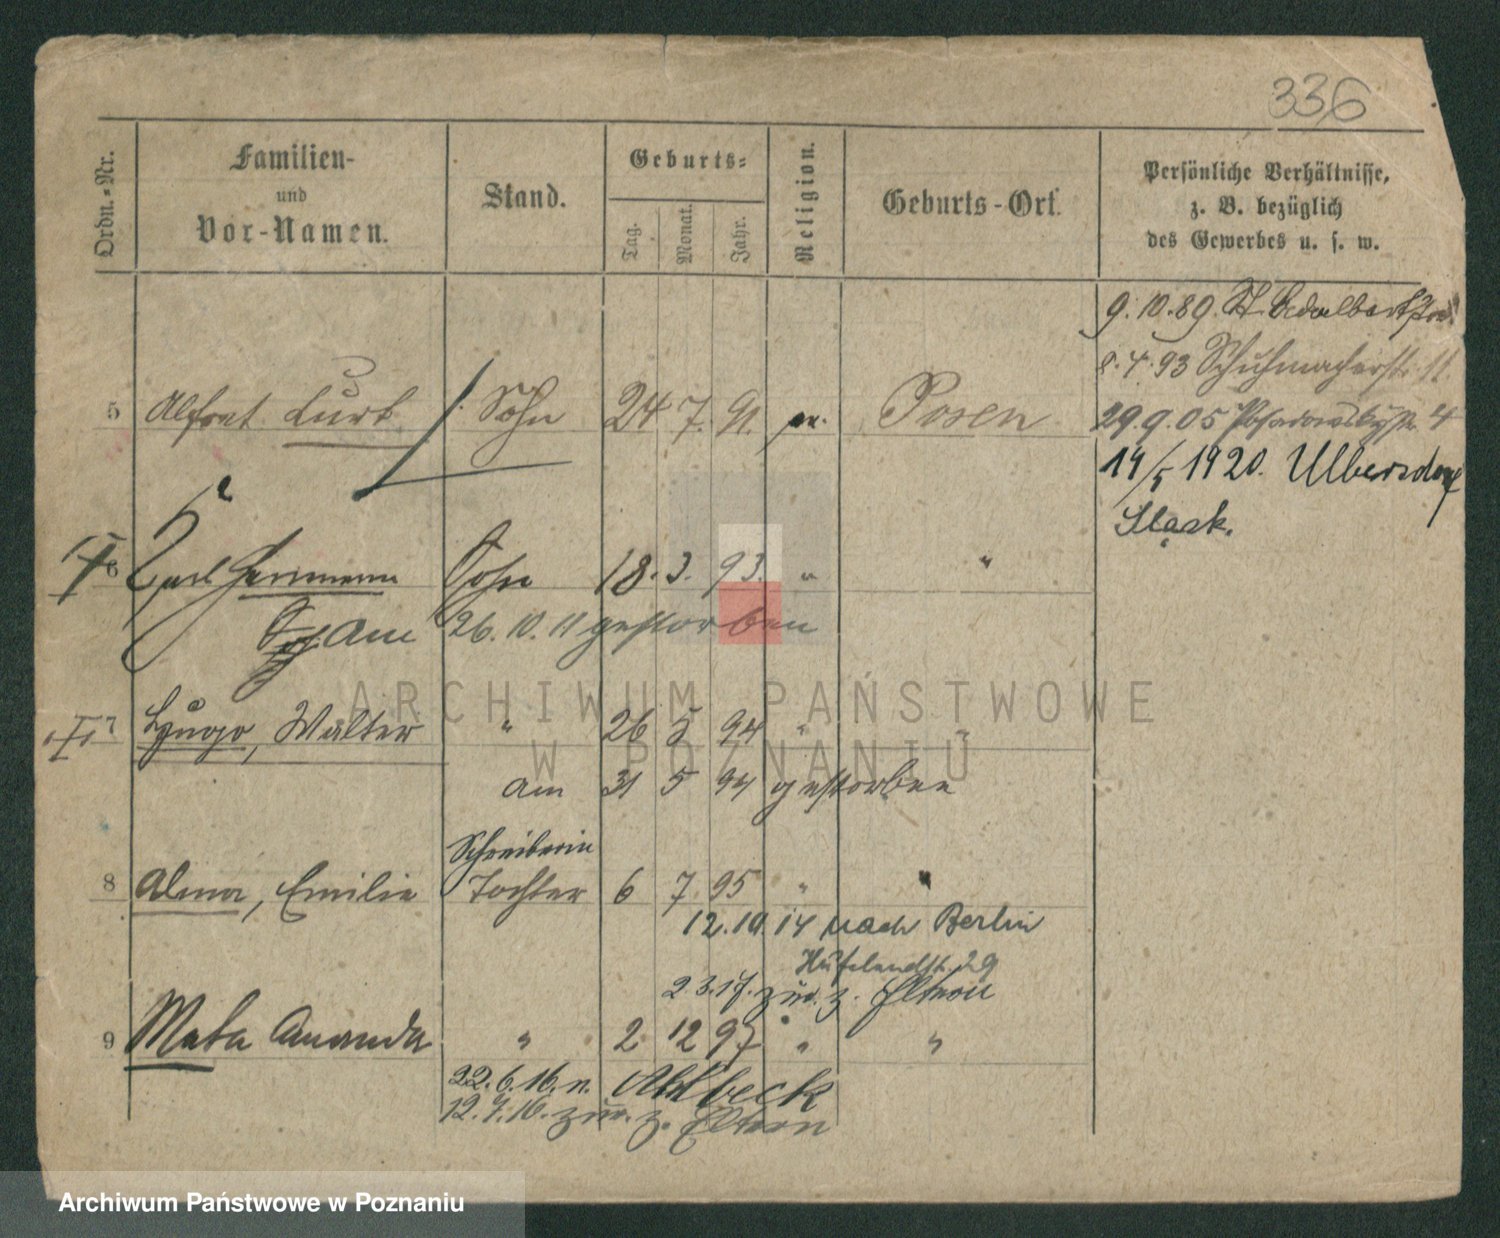 336
Ordn.-Nr.
Familien-
und
Vor-Namen.
Stand.
Geburts-
Tag.
Monat.
Jahr.
Religion.
Geburts-Ort.
Persönliche Verhältnisse,
z. B. bezüglich
des Gewerbes u. s. w.
9.10.89. St Adalbertstr.
8.4.93 Schuhmacherstr. 11.
5 Alfret Curt Sohn 24 7. 91. ev. Posen
29.9.05 Posadowskystr. 4
14/5 1920. Ulbersdorf
Sląsk.
6 Carl Hermann Sohn 18. 3. 93. " "
am 26.10.11 gestorben
7 Hugo, Walter " 26 5 94 " "
am 31 5 94 gestorben
Schreiberin
8 Alma, Emilie Tochter 6 7 95 " "
12.10.14 nach Berlin
Hufelandstr. 29
2.3.17. zur. z. Eltern
9 Meta Amanda " 2 12 97 " "
22.6.16. n. Ahlbeck
12.7.16. zur. z. Eltern
ARCHIWUM PAŃSTWOWE
W POZNANIU
Archiwum Państwowe w Poznaniu